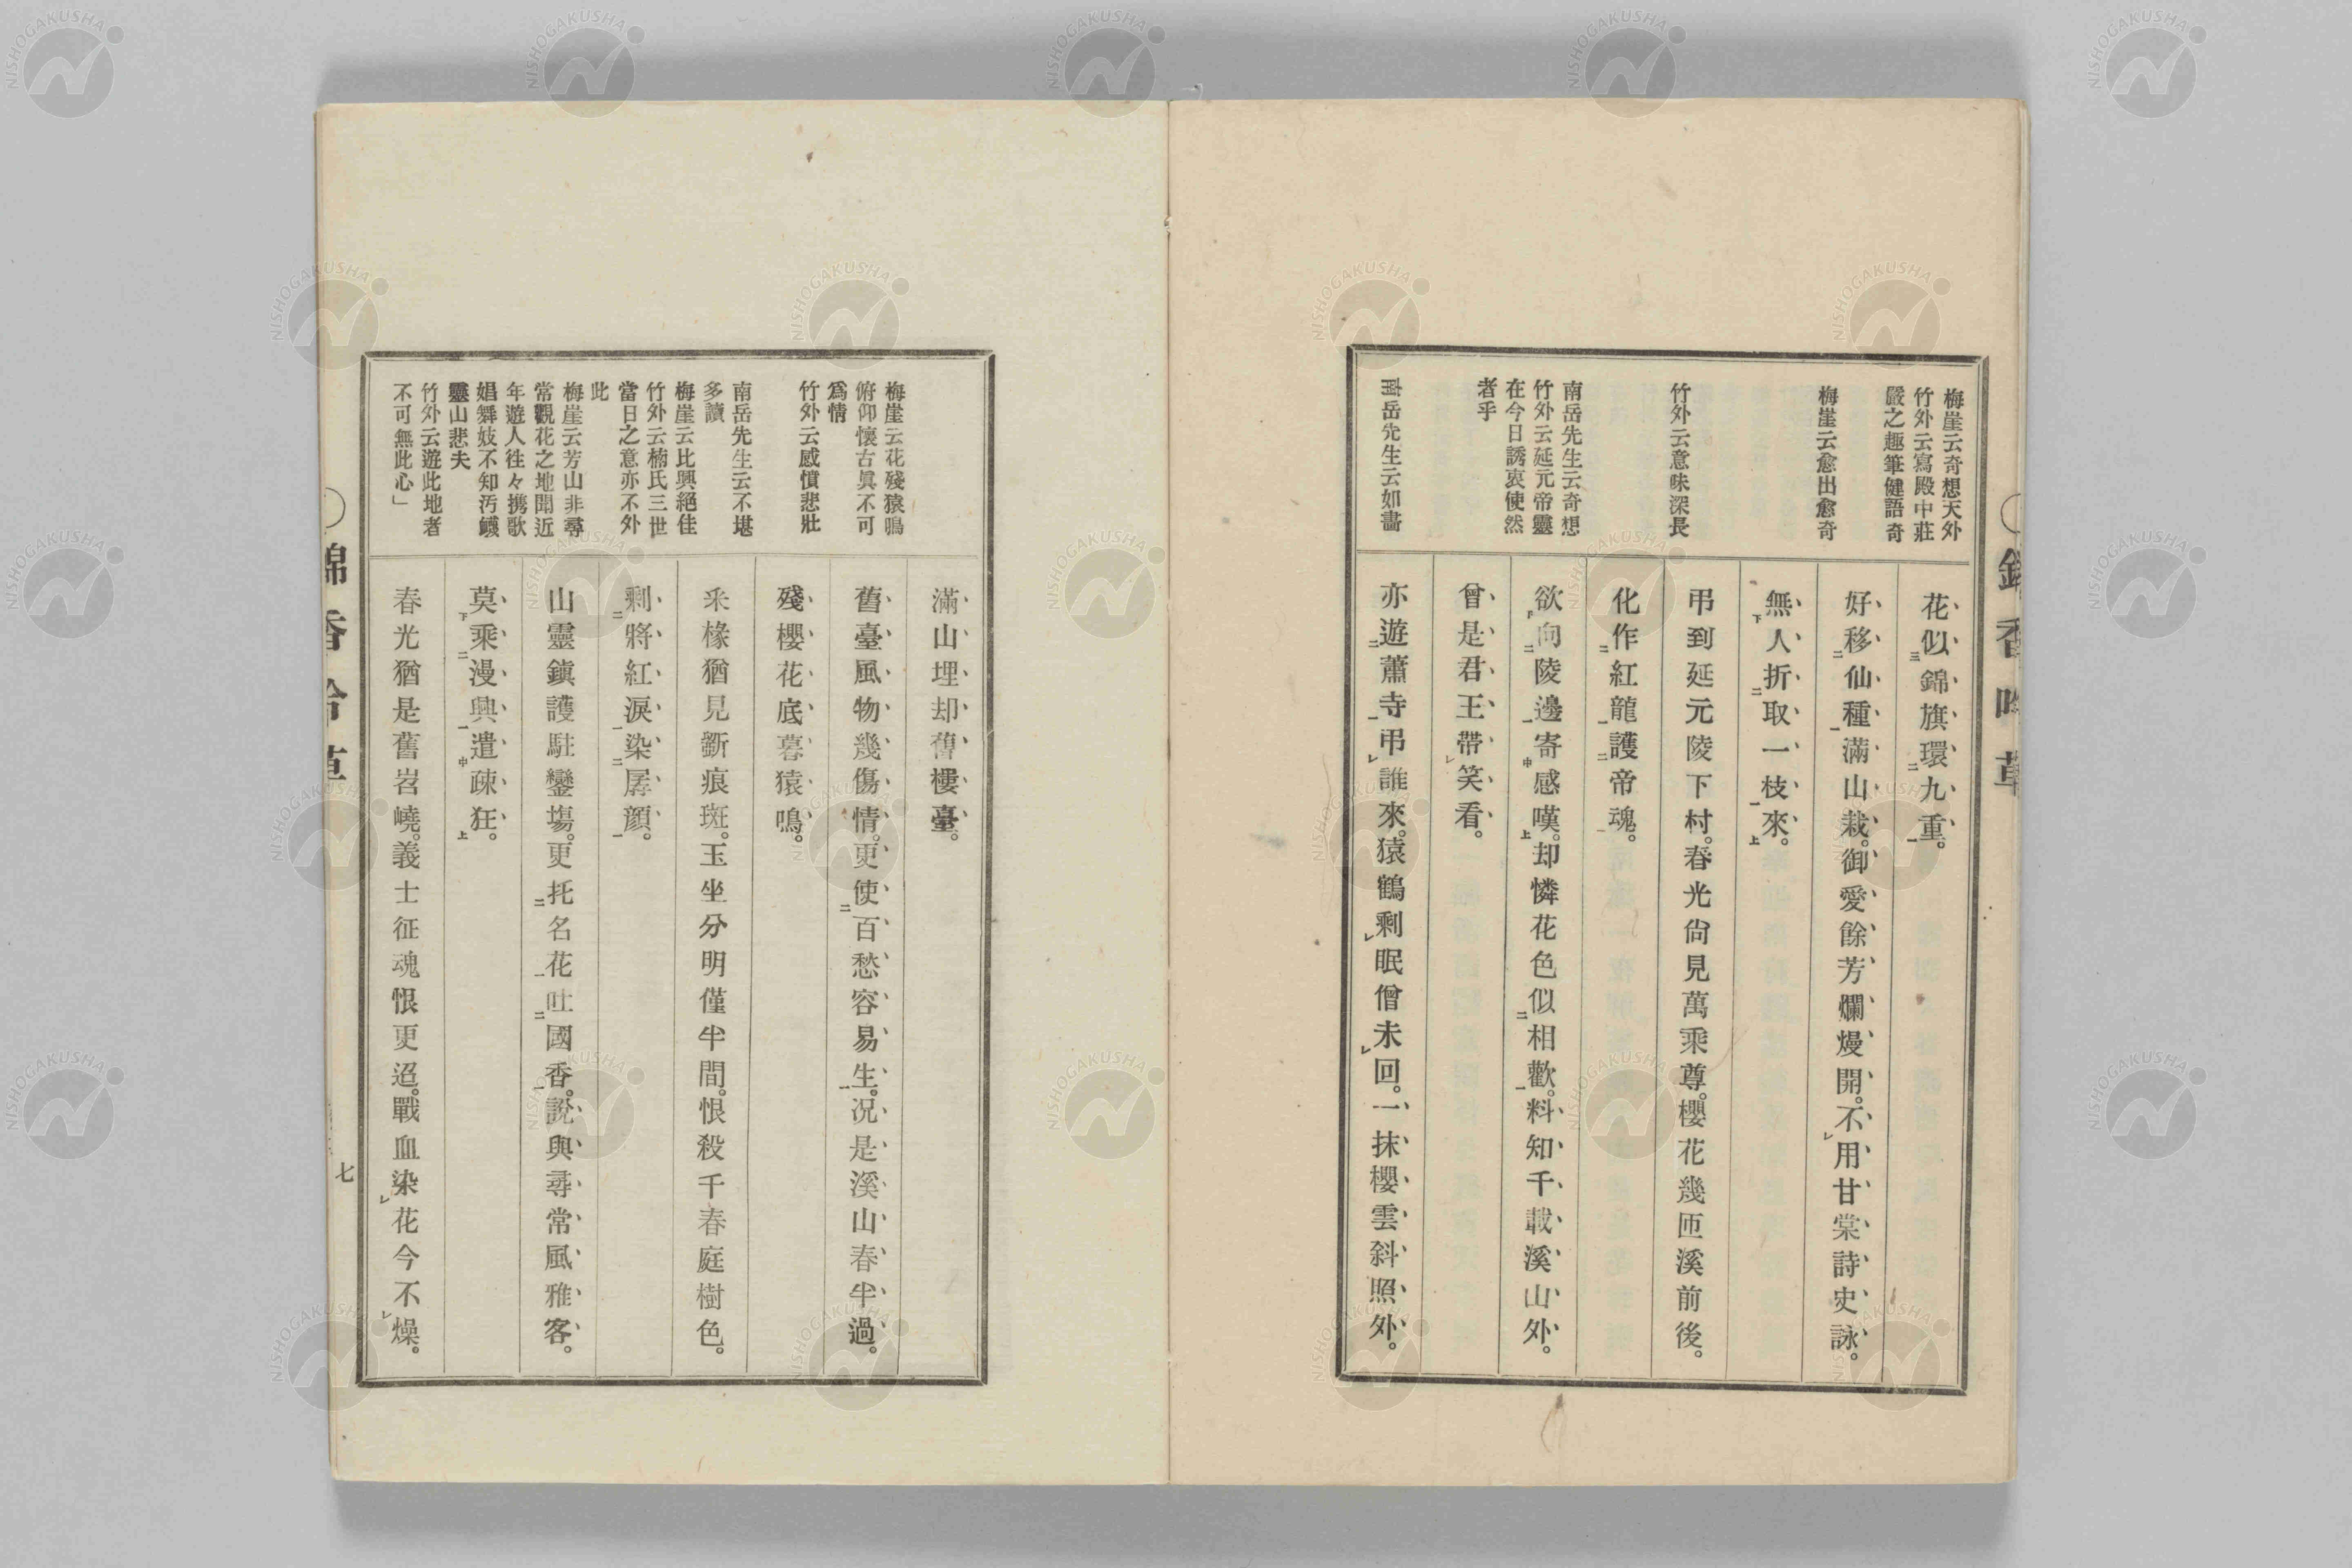 梅崖云奇想天外
竹外云寫殿中莊
嚴之趣筆健語奇
梅崖云愈出愈奇
竹外云意味深長
南岳先生云奇想
竹外云延元帝靈
在今日誘衷使然
者乎
南岳先生云如畵
花似錦旗環九重。
好移仙種滿山栽。御愛餘芳爛熳開。不用甘棠詩史詠。
無人折取一枝來。
弔到延元陵下村。春光尙見萬乘尊。櫻花幾匝溪前後。
化作紅龍護帝魂。
欲向陵邊寄感嘆。却憐花色似相歡。料知千載溪山外。
曾是君王帶笑看。
亦遊蕭寺弔誰來。猿鶴剩眠僧未回。一抹櫻雲斜照外。
梅崖云花殘猿鳴
俯仰懷古眞不可
爲情
竹外云感憤悲壯
南岳先生云不堪
多讀
梅崖云比興絕佳
竹外云楠氏三世
當日之意亦不外
此
梅崖云芳山非尋
常觀花之地聞近
年遊人往々携歌
娼舞妓不知汚衊
靈山悲夫
竹外云遊此地者
不可無此心」
滿山埋却舊樓臺。
舊臺風物幾傷情。更使百愁容易生。况是溪山春半過。
殘櫻花底暮猿鳴。
釆椽猶見斵痕斑。玉坐分明僅半間。恨殺千春庭樹色。
剩將紅淚染孱顔。
山靈鎭護駐鑾塲。更托名花吐國香。說與尋常風雅客。
莫乘漫興遣疎狂。
春光猶是舊岧嶢。義士征魂恨更迢。戰血染花今不燥。
七
NISHOGAKUSHA